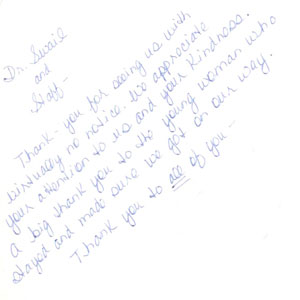 Dr. Swaie
and
Staff—
Thank-you for seeing us with
virtually no notice. We appreciate
your attention to us and your kindness.
A big thank you to the young woman who
stayed and made sure we got on our way.
Thank you to all of you—